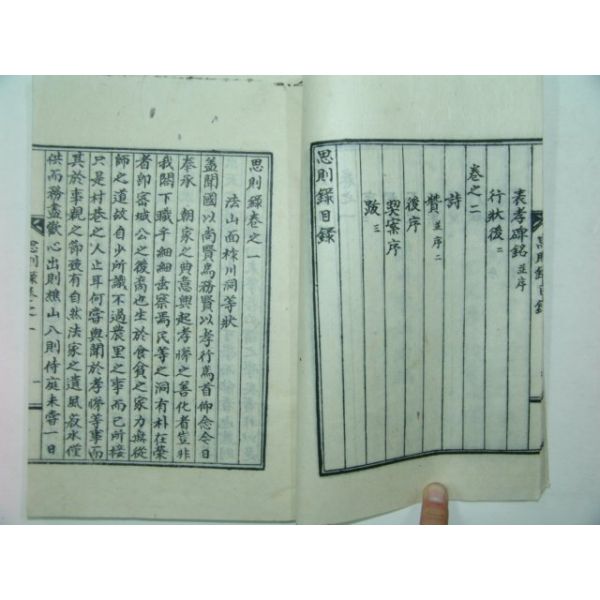 表孝碑銘 並序
行狀後 二
卷之二
詩
贊 並序 二
後序
契案序
跋 三
思則錄目錄
思則錄目錄
思則錄卷之一
法山面楪川洞等狀
盖聞國以尚賢爲務賢以孝行爲首仰念令日
奉承 朝家之典意興起孝悌之善化者豈非
我閤下職乎細細岳察焉民等之洞有朴在榮
者卽密城公之後裔也生於食貧之家力庶從
師之道故自少所識不過農里之事而已所接
只是村巷之人止耳何嘗與聞於孝悌等事而
其於事親之節珱有自然法家之遺風菽水僅
供而務盡歡心出則樵山入則侍庭未嘗一日
思則錄卷之一
一